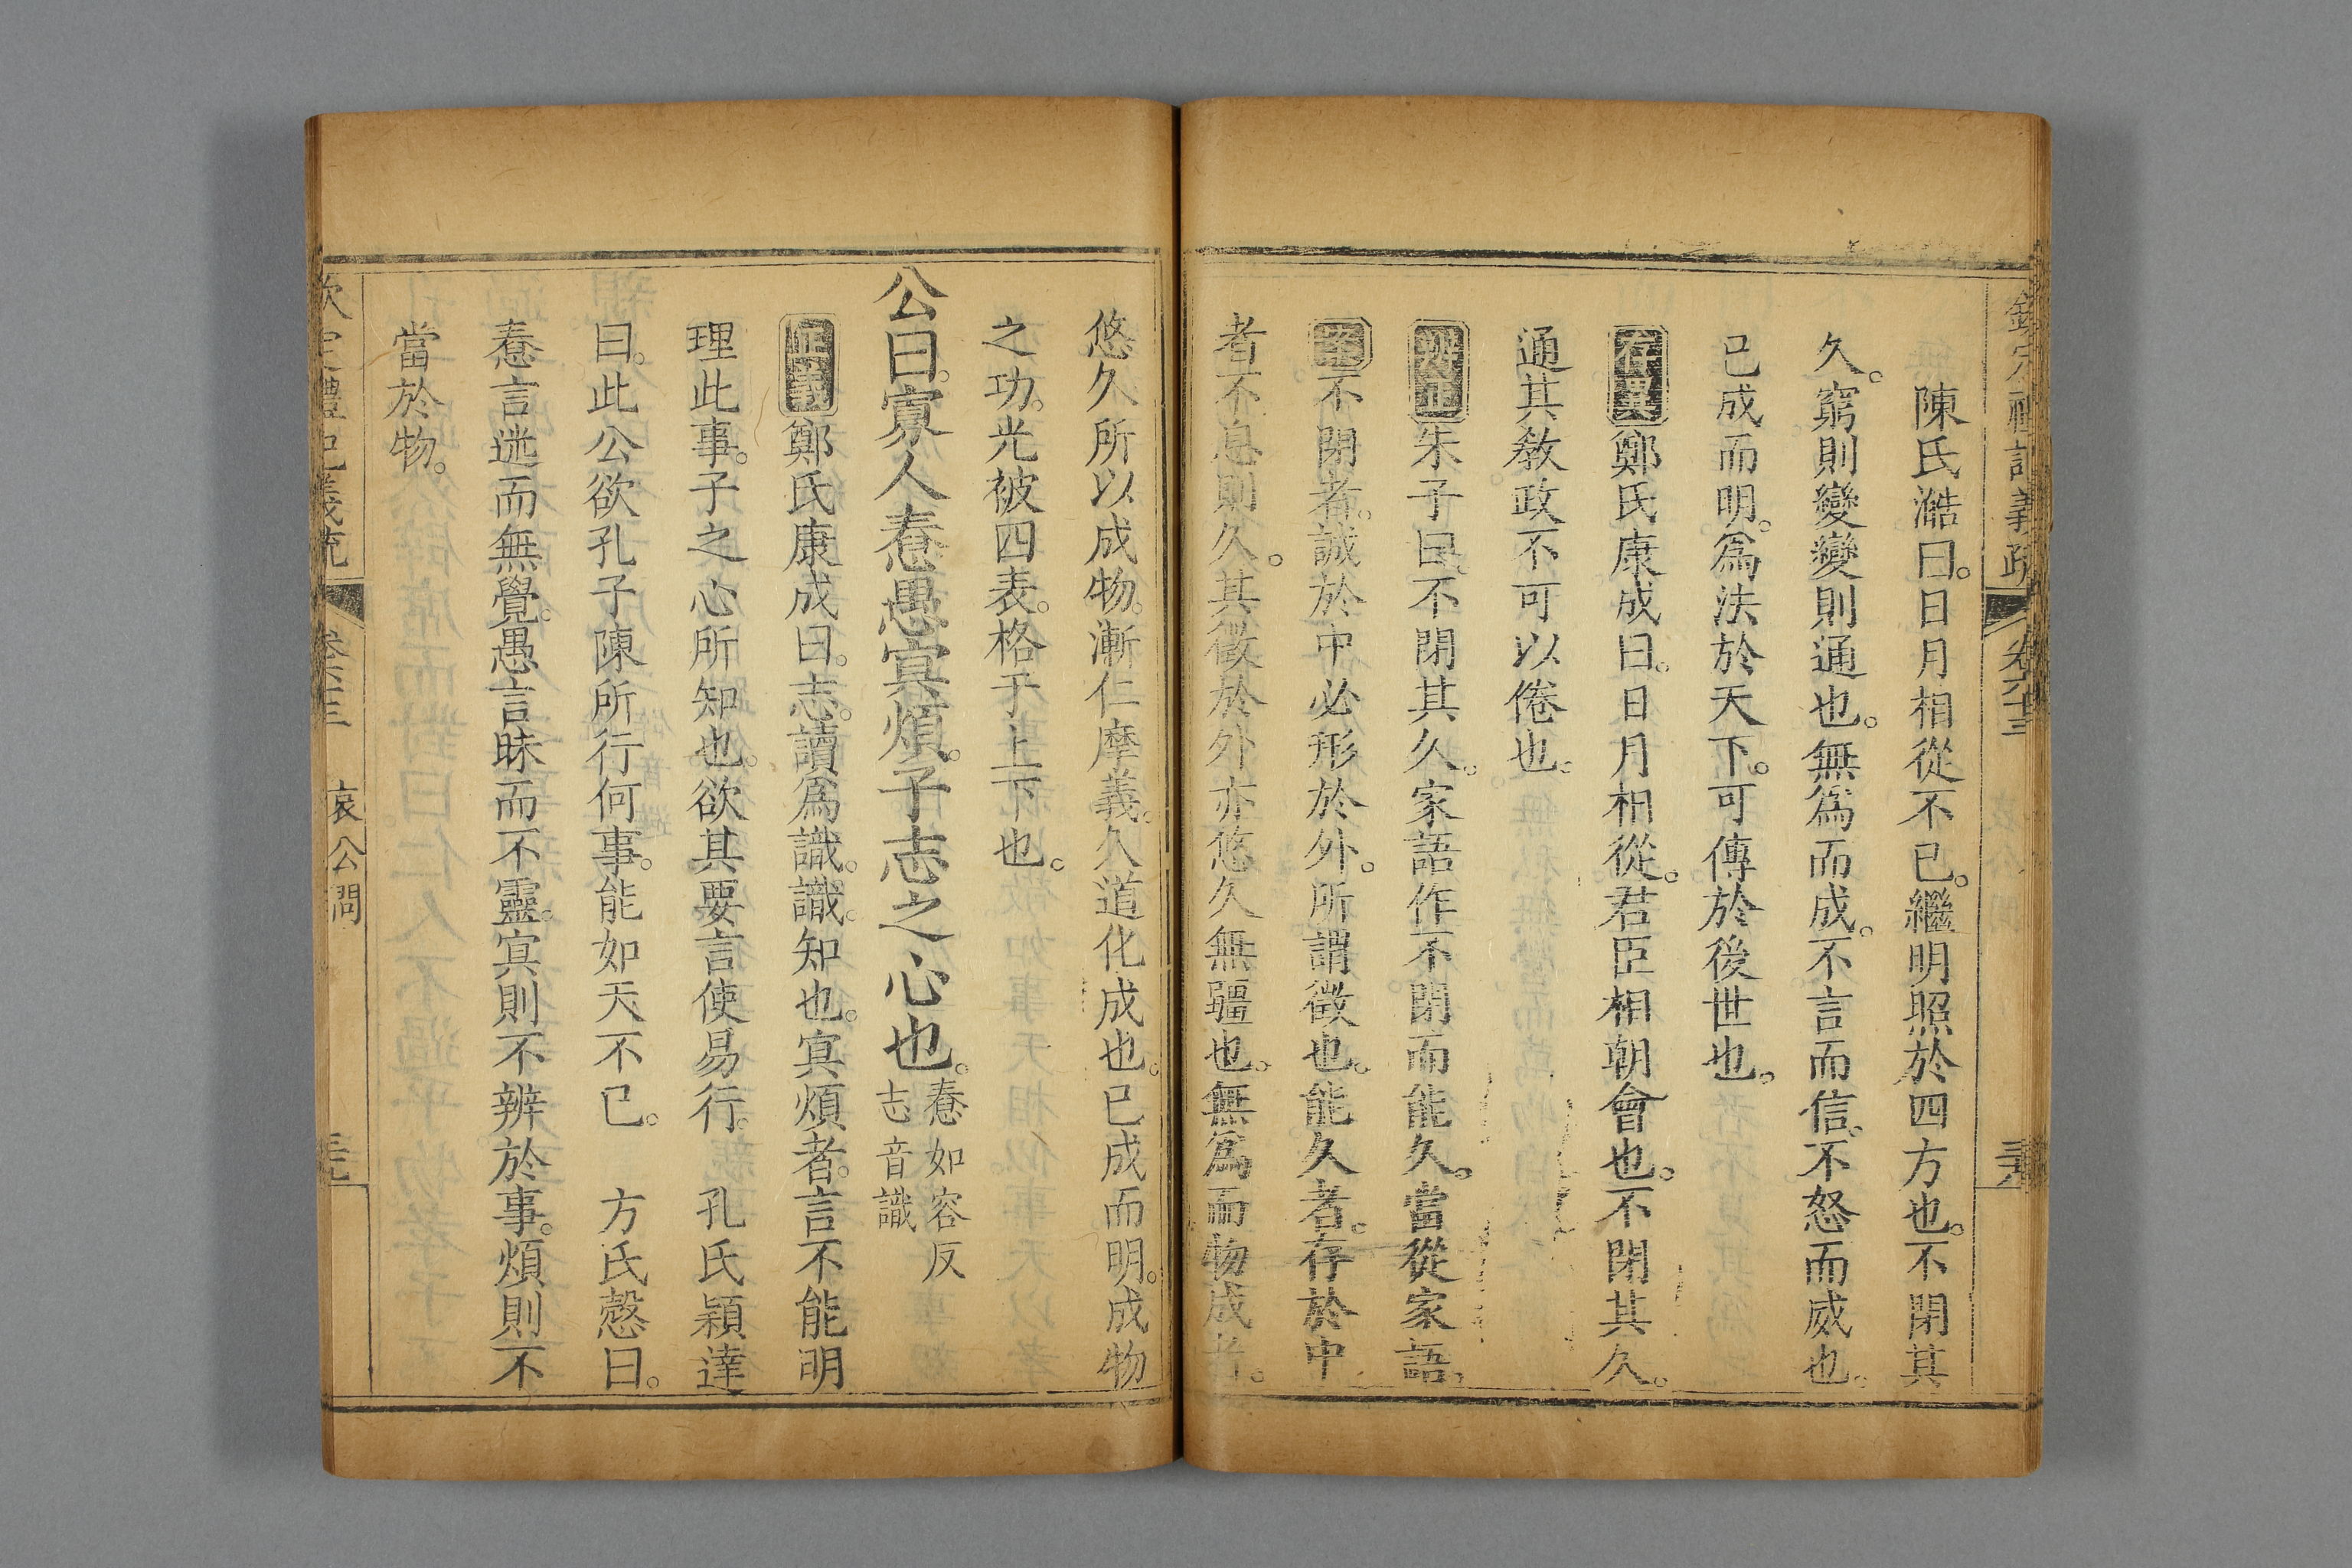 欽定禮記義疏 卷六十三
陳氏澔曰。日月相從不已。繼明照於四方也。不閉其
久。窮則變變則通也。無爲而成。不言而信。不怒而威也。
已成而明。爲法於天下。可傳於後世也。
存異鄭氏康成曰。日月相從。君臣相朝會也。不閉其久。
通其敎政不可以倦也。
辨正朱子曰。不閉其久。家語作不閉而能久。當從家語。
案不閉者。誠於中必形於外。所謂徵也。能久者。存於中
者不息則久。其徵於外亦悠久無疆也。無爲而物成者。
悠久所以成物。漸仁摩義。久道化成也。已成而明。成物
之功。光被四表。格于上下也。
公曰。寡人憃愚冥煩。子志之心也。憃如容反
志音識
正義鄭氏康成曰。志。讀爲識。識。知也。冥煩者。言不能明
理此事。子之心所知也。欲其要言使易行。 孔氏穎達
曰。此公欲孔子陳所行何事。能如天不已。 方氏慤曰。
憃言迷而無覺。愚言昧而不靈。冥則不辨於事。煩則不
當於物。
欽定禮記義疏 卷六十三 哀公問